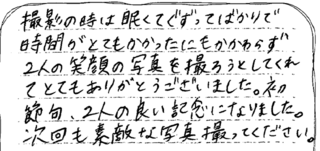 撮影の時は眠くてぐずってばかりで
時間がとてもかかったにもかかわらず
2人の笑顔の写真を撮ろうとしてくれ
てとてもありがとうございました。初
節句、2人の良い記念になりました。
次回も素敵な写真撮ってください。